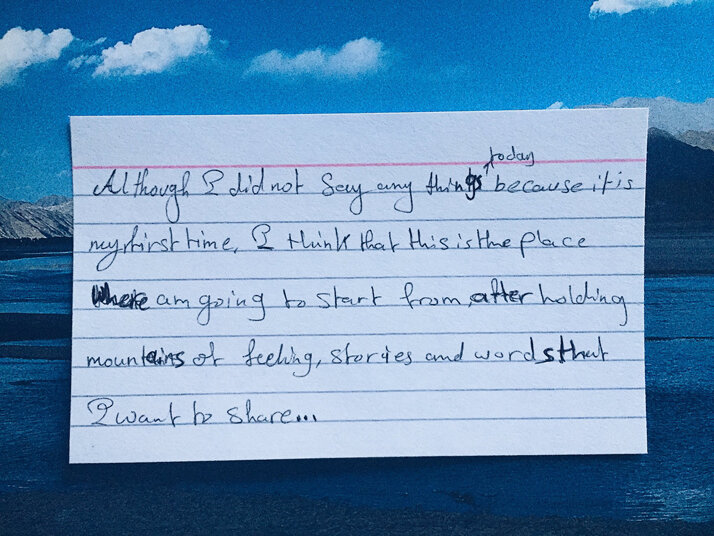 Although I did not say any things today because it is
my first time, I think that this is the place
where am going to start from after holding
mountains of feeling, stories and words that
I want to share...